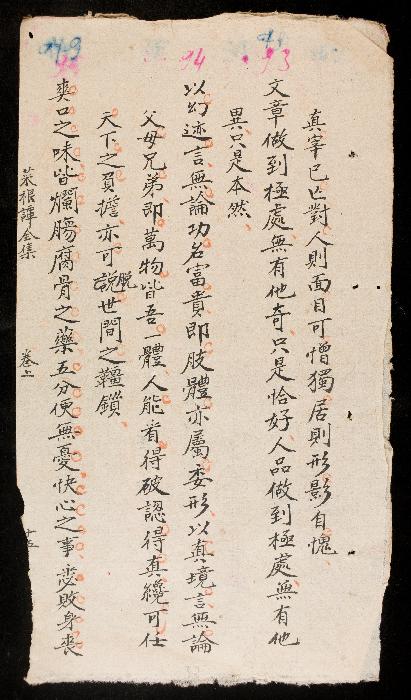 93
94
真宰已亡對人則面目可憎獨居則形影自愧
文章做到極處無有他奇只是恰好人品做到極處無有他
異只是本然
以幻迹言無論功名富貴即肢體亦屬委形以真境言無論
父母兄弟即萬物皆吾一體人能看得破認得真纔可任
天下之負擔亦可說世間之韁鎖
脫
爽口之味皆爛腸腐骨之藥五分便無憂快心之事悉敗身喪
菜根譚全集
卷上
十五